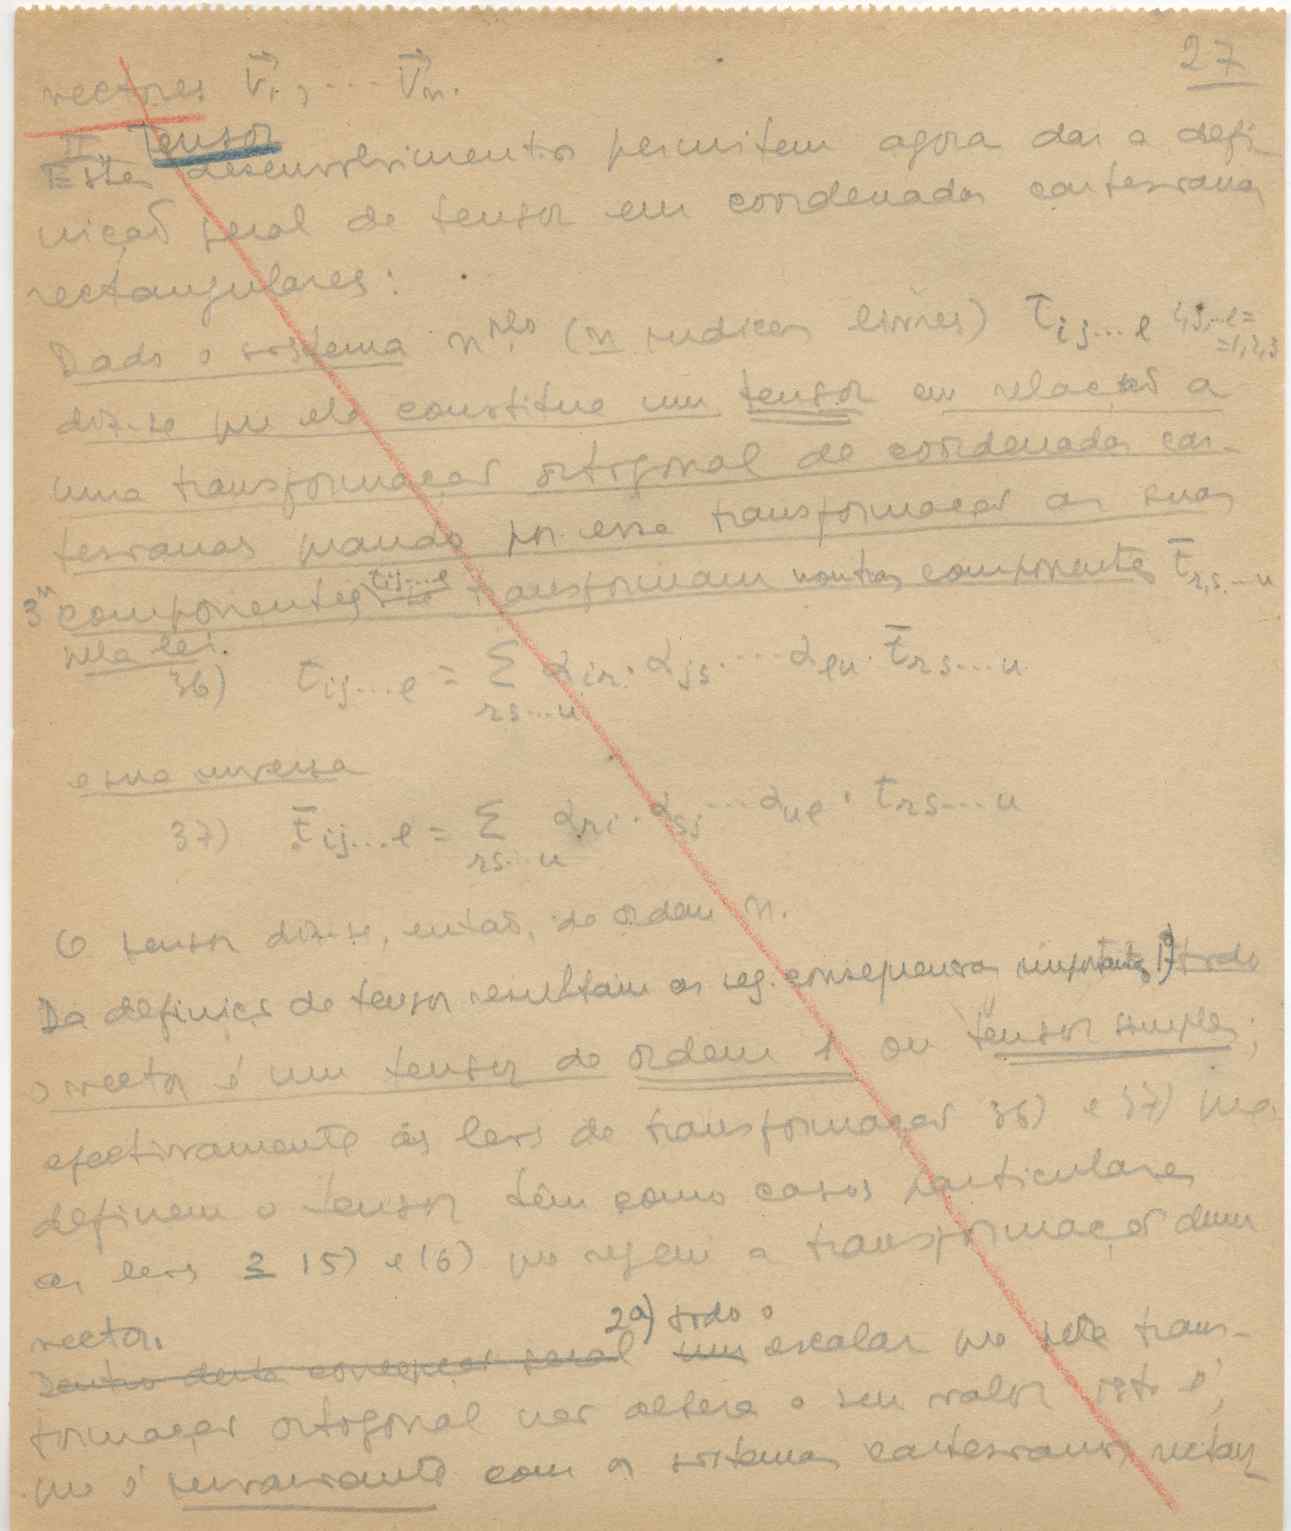 27
vectores V⃗₁, ... V⃗ₙ.
II Tensor
Estes desenvolvimentos permitem agora dar a defi-
nição geral de tensor em coordenadas cartesianas
rectangulares:
Dado o sistema n^plo (n indices livres) t_ij...l i,j,...l= =1,2,3
diz-se que ele constitue um tensor em relação a
uma transformação ortogonal de coordenadas car-
tesianas quando por essa transformação as suas
3ⁿ componentes t_ij...l se transformam noutras componentes t̄_r,s...u
pela lei.
36) t_ij...l = Σ_rs...u α_ir · α_js ... α_lu · t̄_rs...u
e sua inversa
37) t̄_ij...l = Σ_rs...u α_ri · α_sj ... α_ul · t_rs...u
O tensor diz-se, então, de ordem n.
Da definição de tensor resultam as seg. consequencias importantes 1ª) todo
o vector é um tensor de ordem 1 ou tensor simples;
efectivamente as leis de transformação 36) e 37) que
definem o tensor têm como casos particulares
as leis 2 15) e 16) que regem a transformação dum
vector.
2ª) todo o
Dentro desta concepção geral um escalar que pela trans-
formação ortogonal não altera o seu valor isto é,
que é invariante com os sistemas cartesianos rectan